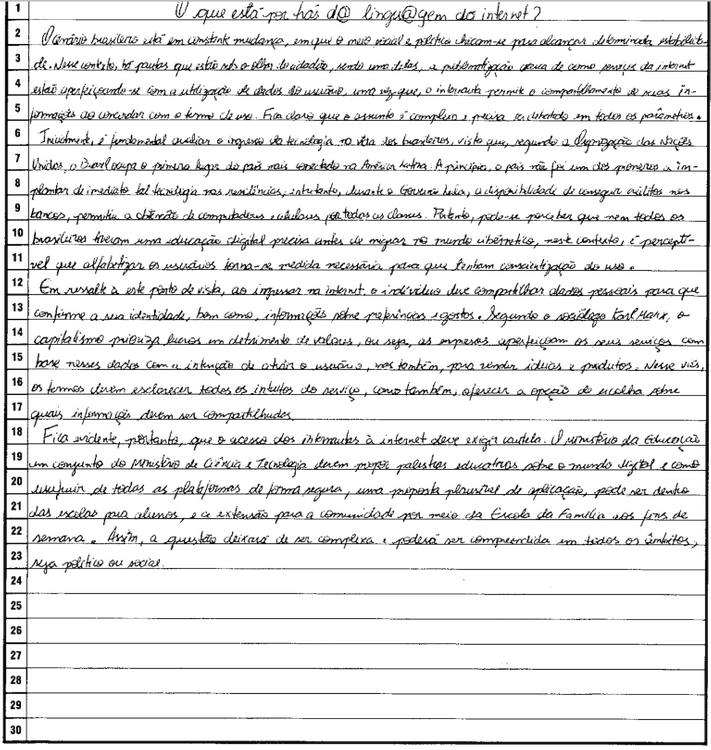 1 O que está por trás d@ lingu@gem da internet?
2 O cenário brasileiro está em constante mudança, em que o meio social e político checam-se para alcançar determinada estabilida-
3 de. Nesse contexto, há pautas que estão sob o olhar do cidadão, sendo uma delas, a problematização acerca de como serviços da internet
4 estão aperfeiçoando-se com a utilização de dados do usuário, uma vez que, o internauta permite o compartilhamento de suas in-
5 formações ao concordar com o termo de uso. Fica claro que o assunto é complexo e precisa ser debatido em todos os parâmetros.
6 Inicialmente, é fundamental avaliar o ingresso da tecnologia na vida dos brasileiros, visto que, segundo a Organização das Nações
7 Unidas, o Brasil ocupa o primeiro lugar do país mais conectado na América Latina. A princípio, o país não foi um dos pioneiros a im-
8 plantar de imediato tal tecnologia nas residências, entretanto, durante o Governo Lula, a disponibilidade de conseguir créditos nos
9 bancos, permitiu a obtenção de computadores e celulares por todas as classes. Portanto, pode-se perceber que nem todos os
10 brasileiros tiveram uma educação digital precisa antes de migrar no mundo cibernético, neste contexto, é perceptí-
11 vel que alfabetizar os usuários torna-se medida necessária para que tenham conscientização do uso.
12 Em ressalte a este ponto de vista, ao ingressar na internet o indivíduo deve compartilhar dados pessoais para que
13 confirme a sua identidade, bem como, informações sobre preferências e gostos. Segundo o sociólogo Karl Marx, o
14 capitalismo prioriza lucros em detrimento de valores, ou seja, as empresas aperfeiçoam os seus serviços com
15 base nesses dados com a intenção de atrair o usuário, mas também, para vender ideias e produtos. Nesse viés,
16 os termos devem esclarecer todos os intuitos do serviço, como também, oferecer a opção de escolha sobre
17 quais informações devem ser compartilhadas.
18 Fica evidente, portanto, que o acesso dos internautas à internet deve exigir cautela. O ministério da Educação
19 em conjunto do Ministério de Ciência e Tecnologia devem propor palestras educativas sobre o mundo digital e como
20 usufruir de todas as plataformas de forma segura, uma proposta plausível de aplicação, pode ser dentro
21 das escolas para alunos, e a extensão para a comunidade por meio da Escola da Família aos fins de
22 semana. Assim, a questão deixará de ser complexa e poderá ser compreendida em todos os âmbitos,
23 seja político ou social.
24
25
26
27
28
29
30